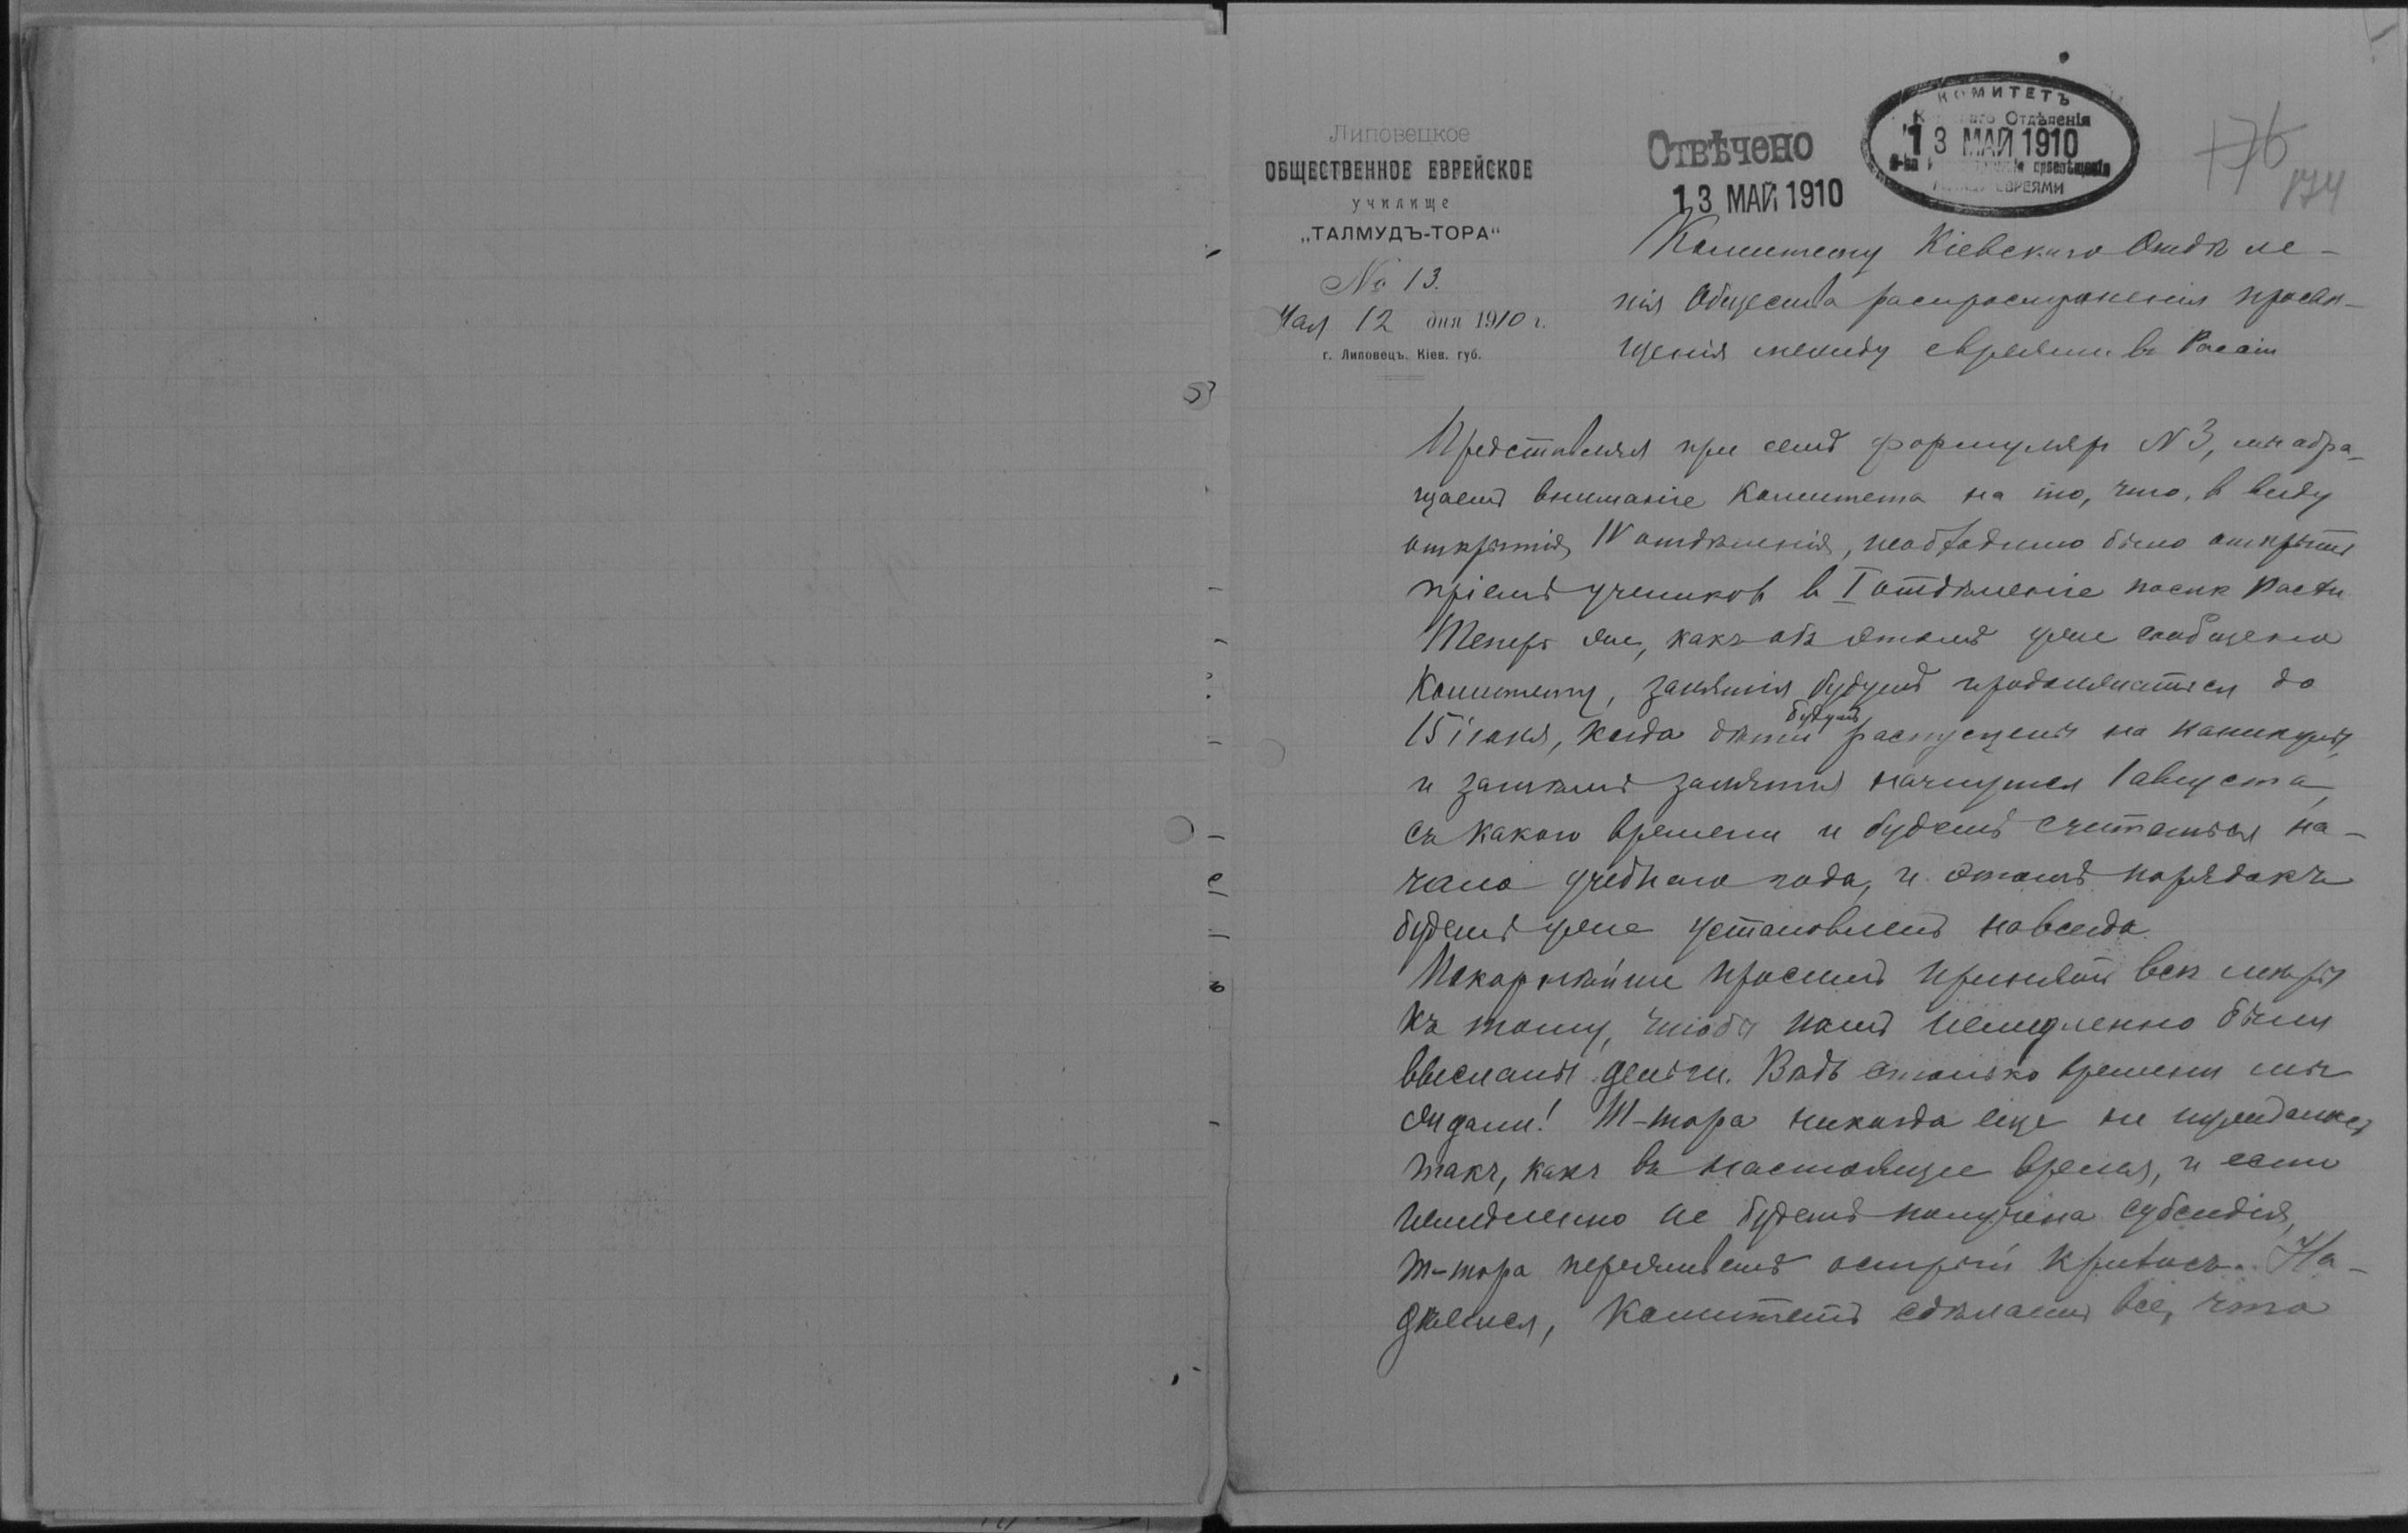 Липовецкое
ОБЩЕСТВЕННОЕ ЕВРЕЙСКОЕ
училище
„ТАЛМУДЪ-ТОРА“
№ 13.
Мая 12 дня 1910 г.
г. Липовецъ. Кіев. губ.
Отвѣчено
13 МАЙ 1910
КОМИТЕТЪ
Отдѣленія
13 МАЙ 1910
просвѣщенія
ЕВРЕЯМИ
176
174
Комитету Кіевскаго Отдѣле-
нія Общества распространенія просвѣ-
щенія между евреями въ Россіи
Представляя при семъ формуляр N 3, мы обра-
щаемъ вниманіе Комитета на то, что, в виду
открытія IV отдѣленія, необходимо было открыть
пріемъ учеников в I отдѣленіе послѣ Пасхи
Теперь же, какъ объ этомъ уже сообщено
Комитету, занятія будутъ продолжаться до
15 іюня, когда дѣти будутъ распущены на каникулы,
и затѣмъ занятія начнутся 1 августа,
съ какого времени и будетъ считаться на-
чало учебнаго года, и этотъ порядокъ
будетъ уже установленъ навсегда.
Покорнѣйше просимъ принять всѣ мѣры
къ тому, чтобы намъ немедленно были
высланы деньги. Вѣдь столько времени мы
ждали! Т-тора никогда еще не нуждалась
такъ, какъ въ настоящее время, и если
немедленно не будетъ получена субсидія,
т-тора переживетъ острый кризисъ. На-
дѣемся, Комитетъ сдѣлаетъ все, что